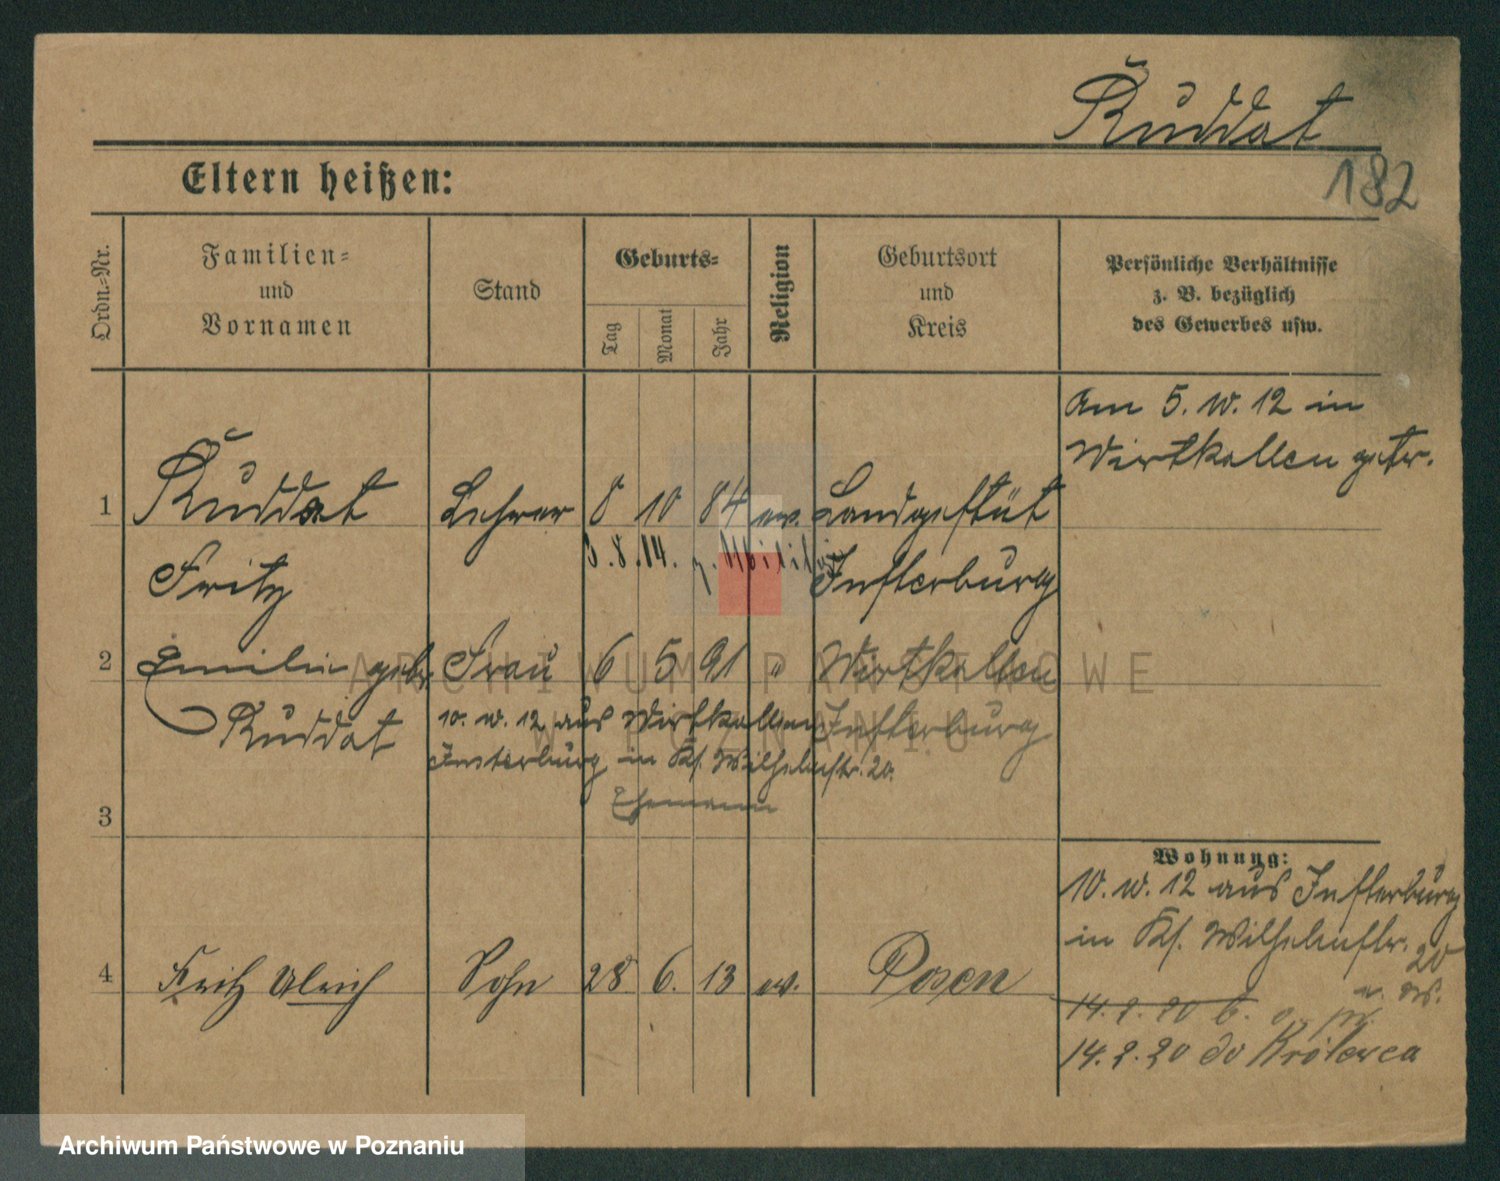 Ruddat
182
Eltern heißen:
Ordn.-Nr.
Familien-
und
Vornamen
Stand
Geburts-
Tag
Monat
Jahr
Religion
Geburtsort
und
Kreis
Persönliche Verhältnisse
z. B. bezüglich
des Gewerbes usw.
Am 5. IV. 12 in
Wirtkallen getr.
1 Ruddat Lehrer 8 10 84 ev. Landgestüt
3.8.14. z. Militär
Fritz Insterburg
2 Emilie geb. Frau 6 5 91 " Wirtkallen
Ruddat Insterburg
10. IV. 12 aus Wirtkallen
Insterburg in Ks. Wilhelmstr. 20.
Ehemann
3
Wohnung:
10. IV. 12 aus Insterburg
in Ks. Wilhelmstr. 20
4 Fritz Ulrich Sohn 28 6. 13 ev. Posen
14. 2. 20
14. 2. 20 do
ARCHIWUM PAŃSTWOWE
W POZNANIU
Archiwum Państwowe w Poznaniu